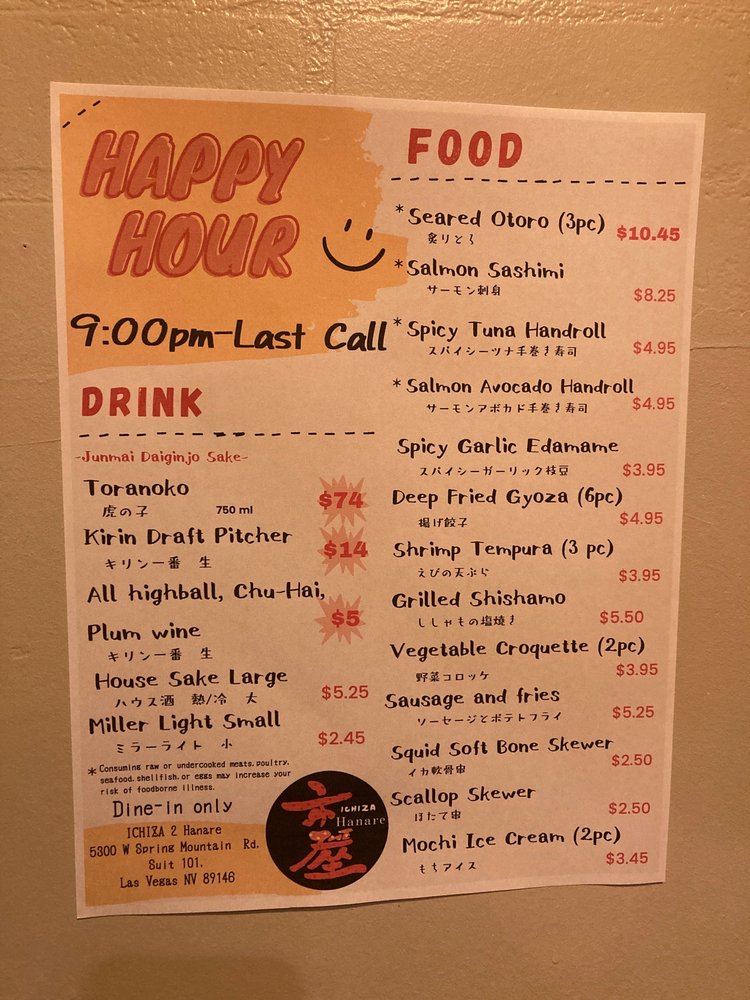 HAPPY
HOUR
9:00pm-Last Call
DRINK
-Junmai Daiginjo Sake-
Toranoko
虎の子 750 ml $74
Kirin Draft Pitcher
キリン一番 生 $14
All highball, Chu-Hai,
$5
Plum wine
キリン一番 生
House Sake Large
ハウス酒 熱/冷 大 $5.25
Miller Light Small
ミラーライト 小 $2.45
* Consuming raw or undercooked meats, poultry,
seafood, shellfish, or eggs may increase your
risk of foodborne illness.
Dine-in only
ICHIZA 2 Hanare
5300 W Spring Mountain Rd.
Suit 101.
Las Vegas NV 89146
市
ICHIZA
Hanare
座
FOOD
*Seared Otoro (3pc) $10.45
炙りとろ
*Salmon Sashimi
サーモン刺身 $8.25
*Spicy Tuna Handroll
スパイシーツナ手巻き寿司 $4.95
*Salmon Avocado Handroll
サーモンアボカド手巻き寿司 $4.95
Spicy Garlic Edamame
スパイシーガーリック枝豆 $3.95
Deep Fried Gyoza (6pc)
揚げ餃子 $4.95
Shrimp Tempura (3 pc)
えびの天ぷら $3.95
Grilled Shishamo
ししゃもの塩焼き $5.50
Vegetable Croquette (2pc)
野菜コロッケ $3.95
Sausage and fries
ソーセージとポテトフライ $5.25
Squid Soft Bone Skewer
イカ軟骨串 $2.50
Scallop Skewer
ほたて串 $2.50
Mochi Ice Cream (2pc)
もちアイス $3.45